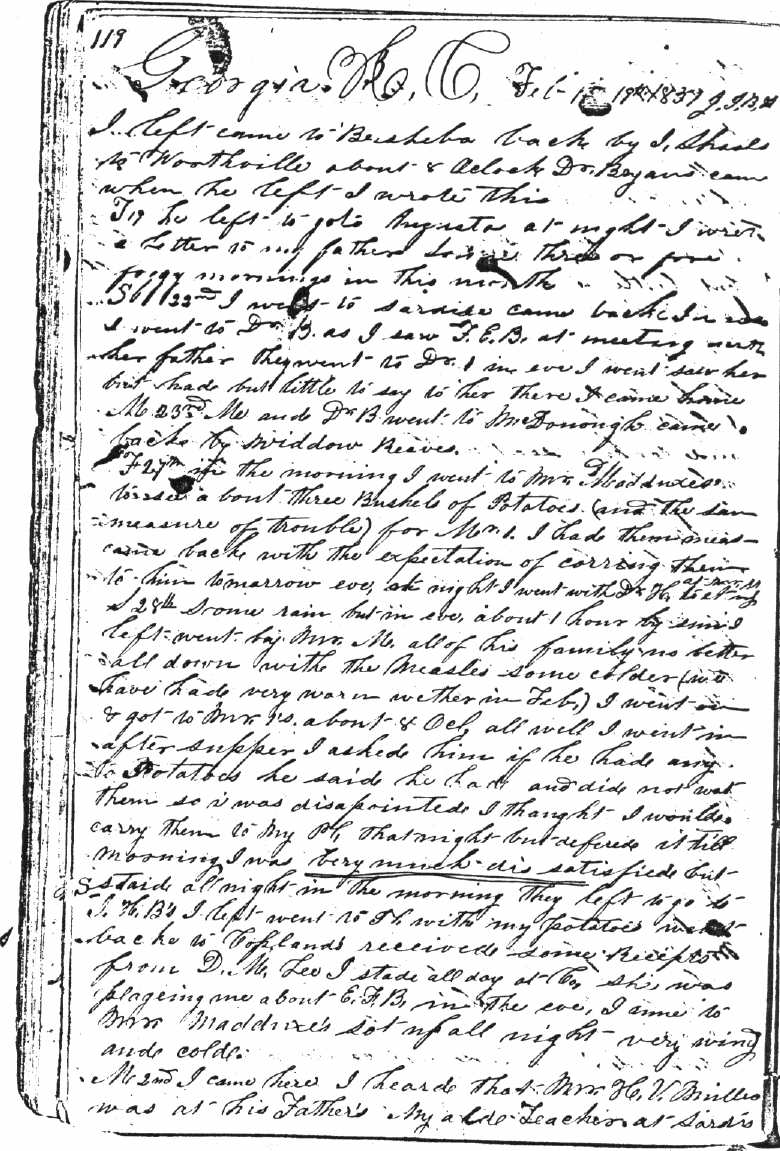 119
Georgia. H, C, Feb 19th 1857 J. J. B.
I left came to Besheba back by J, Shaols
to Worthville about 8 Aclock Dr. Bryans came
when he left I wrote this
T 19 he left to go to Augusta at night I wrote
a Letter to my father three or fore
fogy mornings in this month
S 22nd I went to Sardice came back
I went to Dr. B. as I saw F. E. B. at meeting with
her father they went to Dr. 1 in eve I went saw her
but hade but little to say to her there I came home
M 23rd Me ande Dr B went to McDonough came
backe by widdow Reaves.
F 27th in the morning I went to Mr. Madduxes
to see about three Bushels of Potatoes (and the sam
measure of trouble) for Mr. 1. I hade them meas-
came backe with the expectation of carring them
to him tomarrow eve, at night I went with Dr. H,
S 28th some rain but in eve, about 1 hour by sun I
left went by Mr. M, all of his family no better
all down with the Measles some colder (we
have hade very warm wether in Feb,) I went on
& got to Mr. 1's. about 8 Ocl, all well I went in
after supper I askede him if he hade any
Potatoes he said he had and dide not wat
them so i was disapointede I thanght I woulde
carry them to My Pl, that night but deferede it till
morning I was very much dis satisfiede but
S staide all night in the morning they left to go to
J. H. B's I left went to with my potatoes went
backe to Coplands receivede some Recepts
from D. M. Lee I stade all day at Co, she was
plageing me about E. F. B, in the eve, I came to
Mr. Madduxe's sot up all night very windy
ande colde.
M 2nd I came here I hearde that Mr. H. V. Miller
was at his Father's My alde Teacher at Sardis